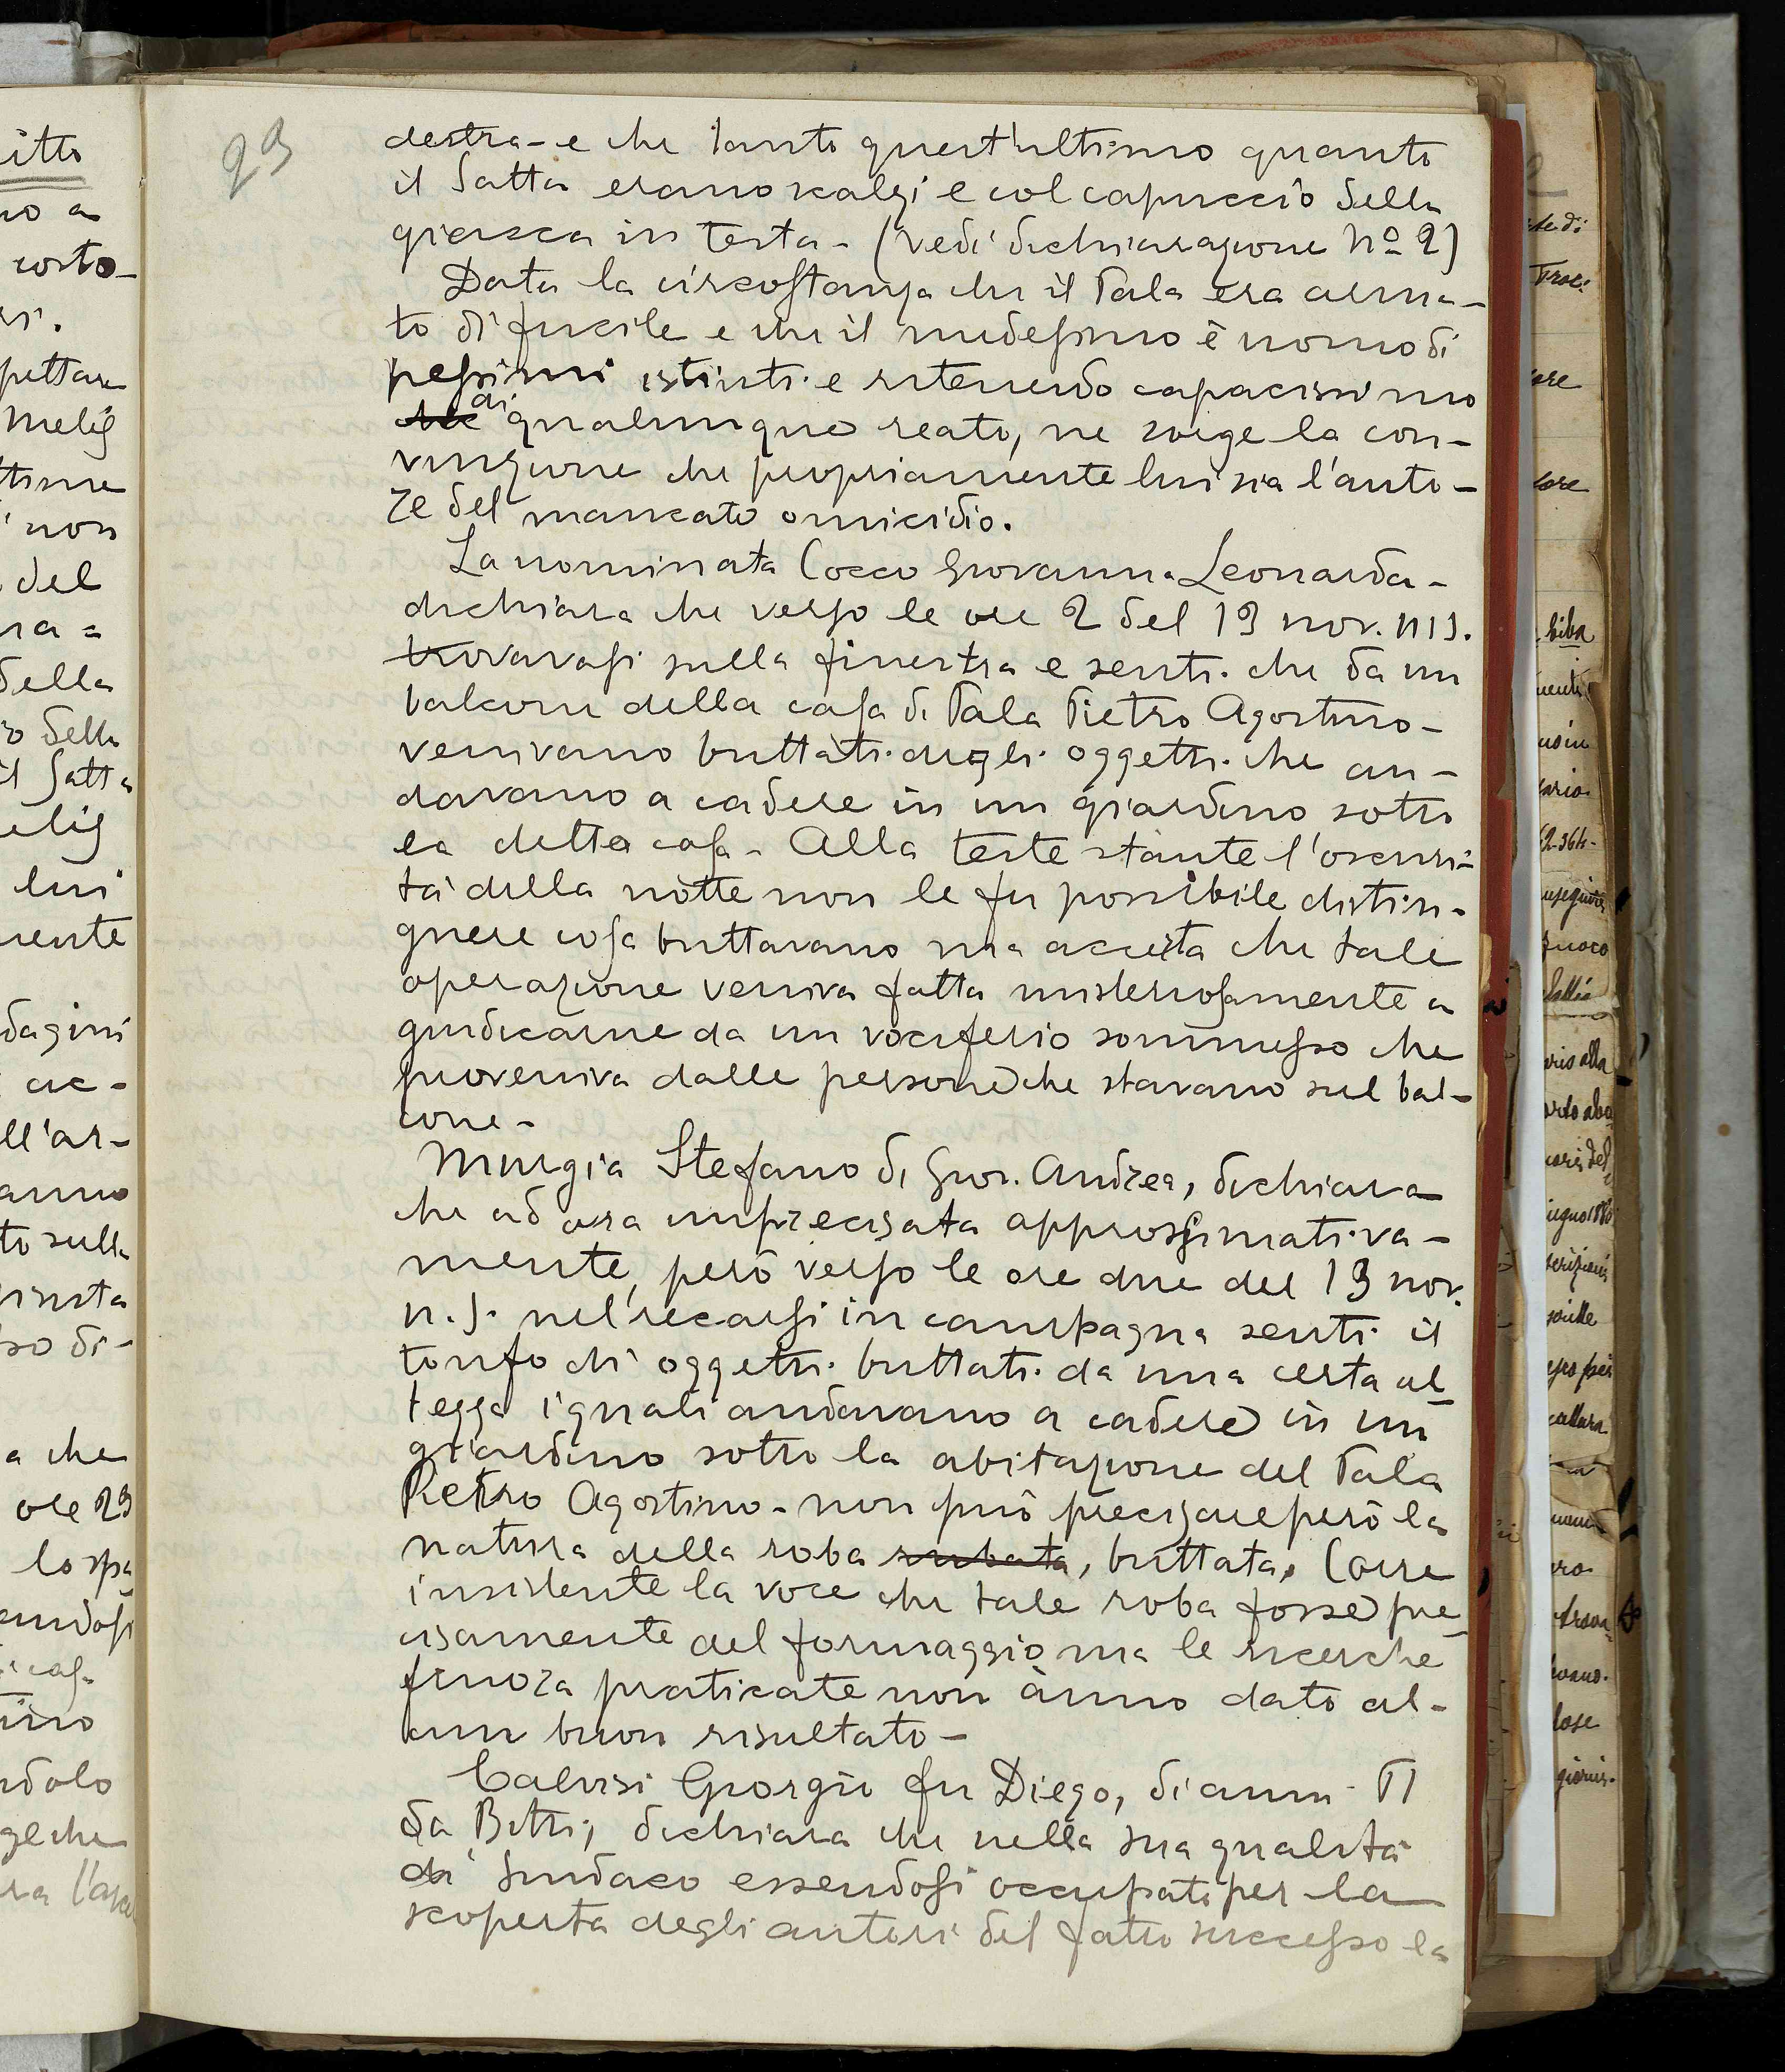 23
destra - e che tanto quest'ultimo quanto
il Satta erano scalzi e col capuccio della
giacca in testa - (Vedi dichiarazione Nº 2)
Data la circostanza che il Pala era arma-
to di fucile e che il medesimo è uomo di
pessimi istinti e ritenendo capacissimo
di qualunque reato, ne sorge la con-
vinzione che propriamente lui sia l'auto-
re del mancato omicidio.
La nominata Cocco Giovanna Leonarda -
dichiara che verso le ore 2 del 13 nov. u.s.
trovavasi sulla finestra e sentì che da un
balcone della casa di Pala Pietro Agostino -
venivano buttati degli oggetti che an-
davano a cadere in un giardino sotto
la detta casa - Alla teste stante l'oscuri-
tà della notte non le fu possibile distin-
guere cosa buttavano ma accerta che tale
operazione veniva fatta misteriosamente a
giudicarne da un vociferio sommesso che
proveniva dalle persone che stavano sul bal-
cone -
Murgia Stefano di Giov. Andrea, dichiara
che ad ora imprecisata approssimativa-
mente, però verso le ore due del 13 nov.
u.s. nel recarsi in campagna sentì il
tonfo di oggetti buttati da una certa al-
tezza i quali andavano a cadere in un
giardino sotto la abitazione del Pala
Pietro Agostino - non può precisare però la
natura della roba rubata, buttata. Corre
insistente la voce che tale roba fosse pre-
cisamente del formaggio ma le ricerche
finora praticate non ànno dato al-
cun buon risultato -
Calvisi Giorgio fu Diego, di anni 71
da Bitti, dichiara che nella sua qualità
di Sindaco essendosi occupato per la
scoperta degli autori del fatto successo la